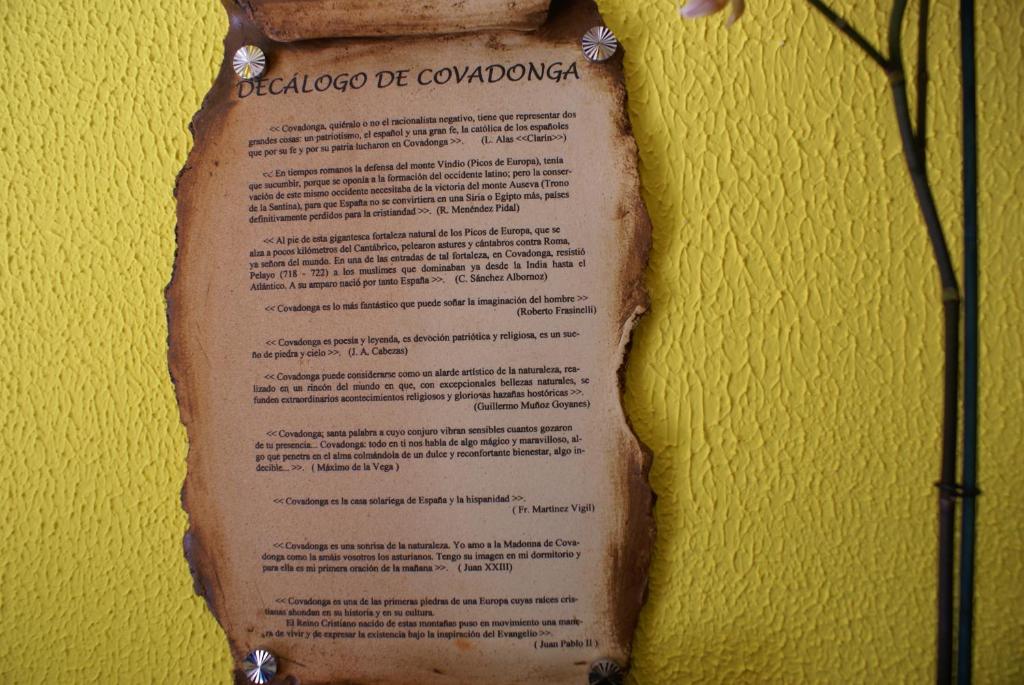 DECÁLOGO DE COVADONGA
<< Covadonga, quiéralo o no el racionalista negativo, tiene que representar dos
grandes cosas: un patriotismo, el español y una gran fe, la católica de los españoles
que por su fe y por su patria lucharon en Covadonga >>. (L. Alas <<Clarín>>)
<< En tiempos romanos la defensa del monte Vindio (Picos de Europa), tenía
que sucumbir, porque se oponía a la formación del occidente latino; pero la conser-
vación de este mismo occidente necesitaba de la victoria del monte Auseva (Trono
de la Santina), para que España no se convirtiera en una Siria o Egipto más, países
definitivamente perdidos para la cristiandad >>. (R. Menéndez Pidal)
<< Al pie de esta gigantesca fortaleza natural de los Picos de Europa, que se
alza a pocos kilómetros del Cantábrico, pelearon astures y cántabros contra Roma,
ya señora del mundo. En una de las entradas de tal fortaleza, en Covadonga, resistió
Pelayo (718 - 722) a los muslimes que dominaban ya desde la India hasta el
Atlántico. A su amparo nació por tanto España >>. (C. Sánchez Albornoz)
<< Covadonga es lo más fantástico que puede soñar la imaginación del hombre >>
(Roberto Frasinelli)
<< Covadonga es poesía y leyenda, es devoción patriótica y religiosa, es un sue-
ño de piedra y cielo >>. (J. A. Cabezas)
<< Covadonga puede considerarse como un alarde artístico de la naturaleza, rea-
lizado en un rincón del mundo en que, con excepcionales bellezas naturales, se
funden extraordinarios acontecimientos religiosos y gloriosas hazañas hostóricas >>.
(Guillermo Muñoz Goyanes)
<< Covadonga; santa palabra a cuyo conjuro vibran sensibles cuantos gozaron
de tu presencia... Covadonga: todo en ti nos habla de algo mágico y maravilloso, al-
go que penetra en el alma colmándola de un dulce y reconfortante bienestar, algo in-
decible... >>. ( Máximo de la Vega )
<< Covadonga es la casa solariega de España y la hispanidad >>.
( Fr. Martínez Vigil)
<< Covadonga es una sonrisa de la naturaleza. Yo amo a la Madonna de Cova-
donga como la amáis vosotros los asturianos. Tengo su imagen en mi dormitorio y
para ella es mi primera oración de la mañana >>. ( Juan XXIII)
<< Covadonga es una de las primeras piedras de una Europa cuyas raíces cris-
tianas ahondan en su historia y en su cultura.
El Reino Cristiano nacido de estas montañas puso en movimiento una mane-
ra de vivir y de expresar la existencia bajo la inspiración del Evangelio >>.
( Juan Pablo II )